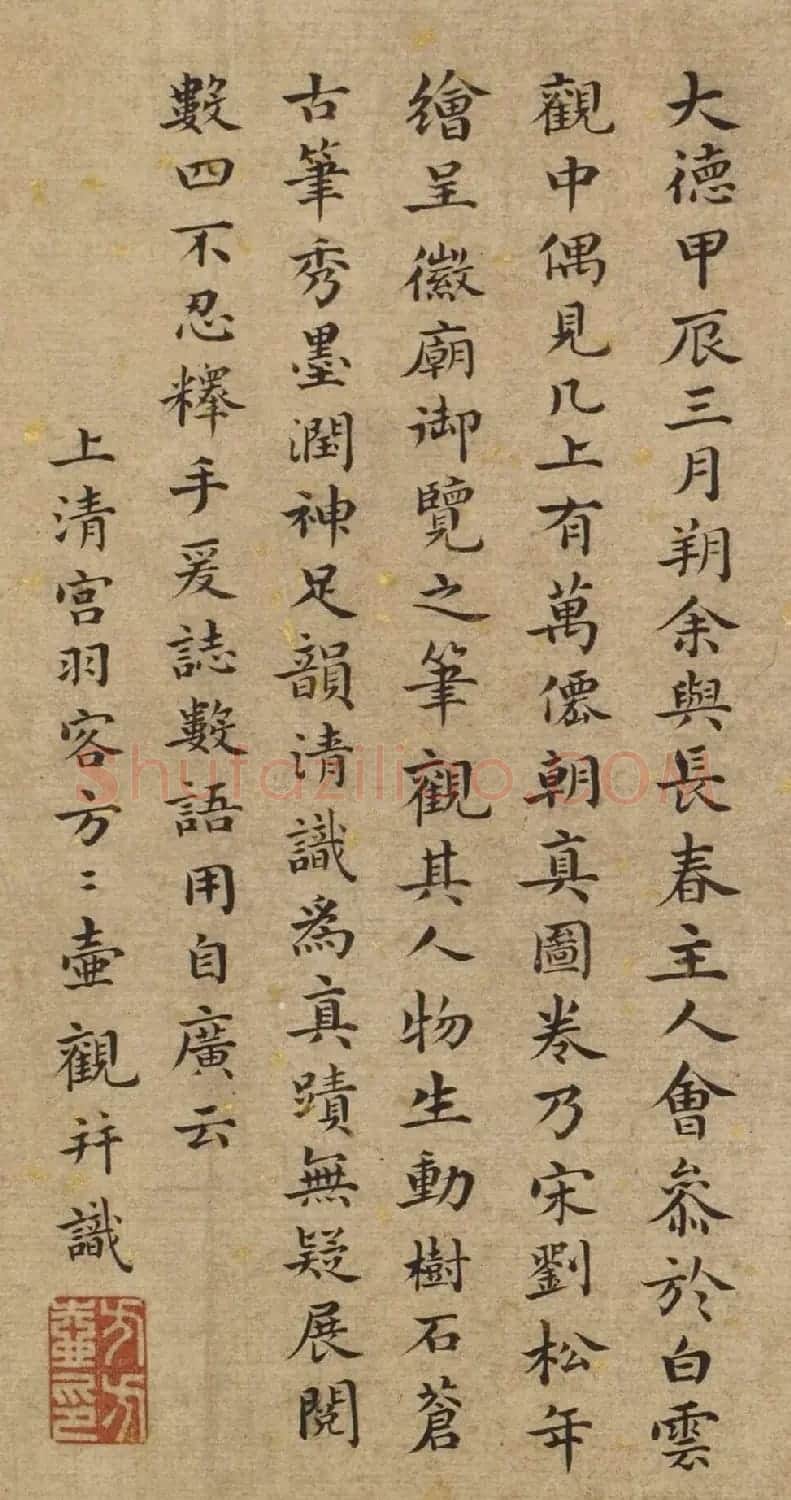 大德甲辰三月朔余與長春主人會叅於白雲
觀中偶見几上有萬僊朝真圖卷乃宋劉松年
繪呈徽廟御覽之筆觀其人物生動樹石蒼
古筆秀墨潤神足韻清識為真蹟無疑展閱
數四不忍釋手爰誌數語用自廣云
上清宮羽客方〻壺觀并識
方方壺印
shufaziliao.com